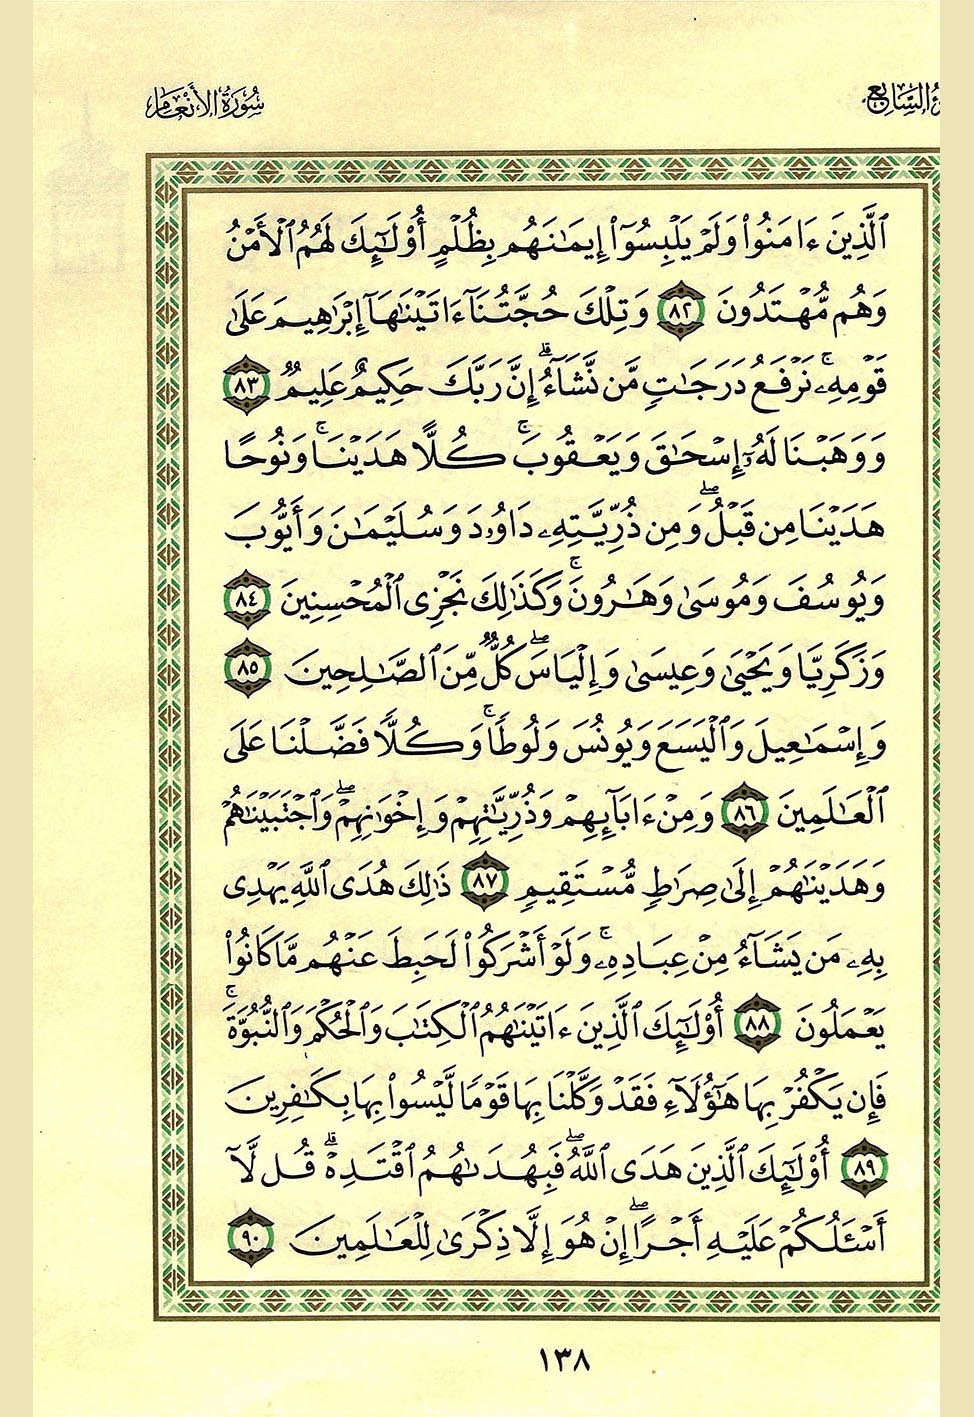 سُورَةُ الأَنْعَامِ
السَّابِعُ
ٱلَّذِينَ ءَامَنُوا۟ وَلَمْ يَلْبِسُوٓا۟ إِيمَـٰنَهُم بِظُلْمٍ أُو۟لَـٰٓئِكَ لَهُمُ ٱلْأَمْنُ
وَهُم مُّهْتَدُونَ ٨٢ وَتِلْكَ حُجَّتُنَآ ءَاتَيْنَـٰهَآ إِبْرَٰهِيمَ عَلَىٰ
قَوْمِهِۦ ۚ نَرْفَعُ دَرَجَـٰتٍ مَّن نَّشَآءُ ۗ إِنَّ رَبَّكَ حَكِيمٌ عَلِيمٌ ٨٣
وَوَهَبْنَا لَهُۥٓ إِسْحَـٰقَ وَيَعْقُوبَ ۚ كُلًّا هَدَيْنَا ۚ وَنُوحًا
هَدَيْنَا مِن قَبْلُ ۖ وَمِن ذُرِّيَّتِهِۦ دَاوُۥدَ وَسُلَيْمَـٰنَ وَأَيُّوبَ
وَيُوسُفَ وَمُوسَىٰ وَهَـٰرُونَ ۚ وَكَذَٰلِكَ نَجْزِى ٱلْمُحْسِنِينَ ٨٤
وَزَكَرِيَّا وَيَحْيَىٰ وَعِيسَىٰ وَإِلْيَاسَ ۖ كُلٌّ مِّنَ ٱلصَّـٰلِحِينَ ٨٥
وَإِسْمَـٰعِيلَ وَٱلْيَسَعَ وَيُونُسَ وَلُوطًا ۚ وَكُلًّا فَضَّلْنَا عَلَى
ٱلْعَـٰلَمِينَ ٨٦ وَمِنْ ءَابَآئِهِمْ وَذُرِّيَّـٰتِهِمْ وَإِخْوَٰنِهِمْ ۖ وَٱجْتَبَيْنَـٰهُمْ
وَهَدَيْنَـٰهُمْ إِلَىٰ صِرَٰطٍ مُّسْتَقِيمٍ ٨٧ ذَٰلِكَ هُدَى ٱللَّهِ يَهْدِى
بِهِۦ مَن يَشَآءُ مِنْ عِبَادِهِۦ ۚ وَلَوْ أَشْرَكُوا۟ لَحَبِطَ عَنْهُم مَّا كَانُوا۟
يَعْمَلُونَ ٨٨ أُو۟لَـٰٓئِكَ ٱلَّذِينَ ءَاتَيْنَـٰهُمُ ٱلْكِتَـٰبَ وَٱلْحُكْمَ وَٱلنُّبُوَّةَ ۚ
فَإِن يَكْفُرْ بِهَا هَـٰٓؤُلَآءِ فَقَدْ وَكَّلْنَا بِهَا قَوْمًا لَّيْسُوا۟ بِهَا بِكَـٰفِرِينَ
٨٩ أُو۟لَـٰٓئِكَ ٱلَّذِينَ هَدَى ٱللَّهُ ۖ فَبِهُدَىٰهُمُ ٱقْتَدِهْ ۗ قُل لَّآ
أَسْـَٔلُكُمْ عَلَيْهِ أَجْرًا ۖ إِنْ هُوَ إِلَّا ذِكْرَىٰ لِلْعَـٰلَمِينَ ٩٠
١٣٨